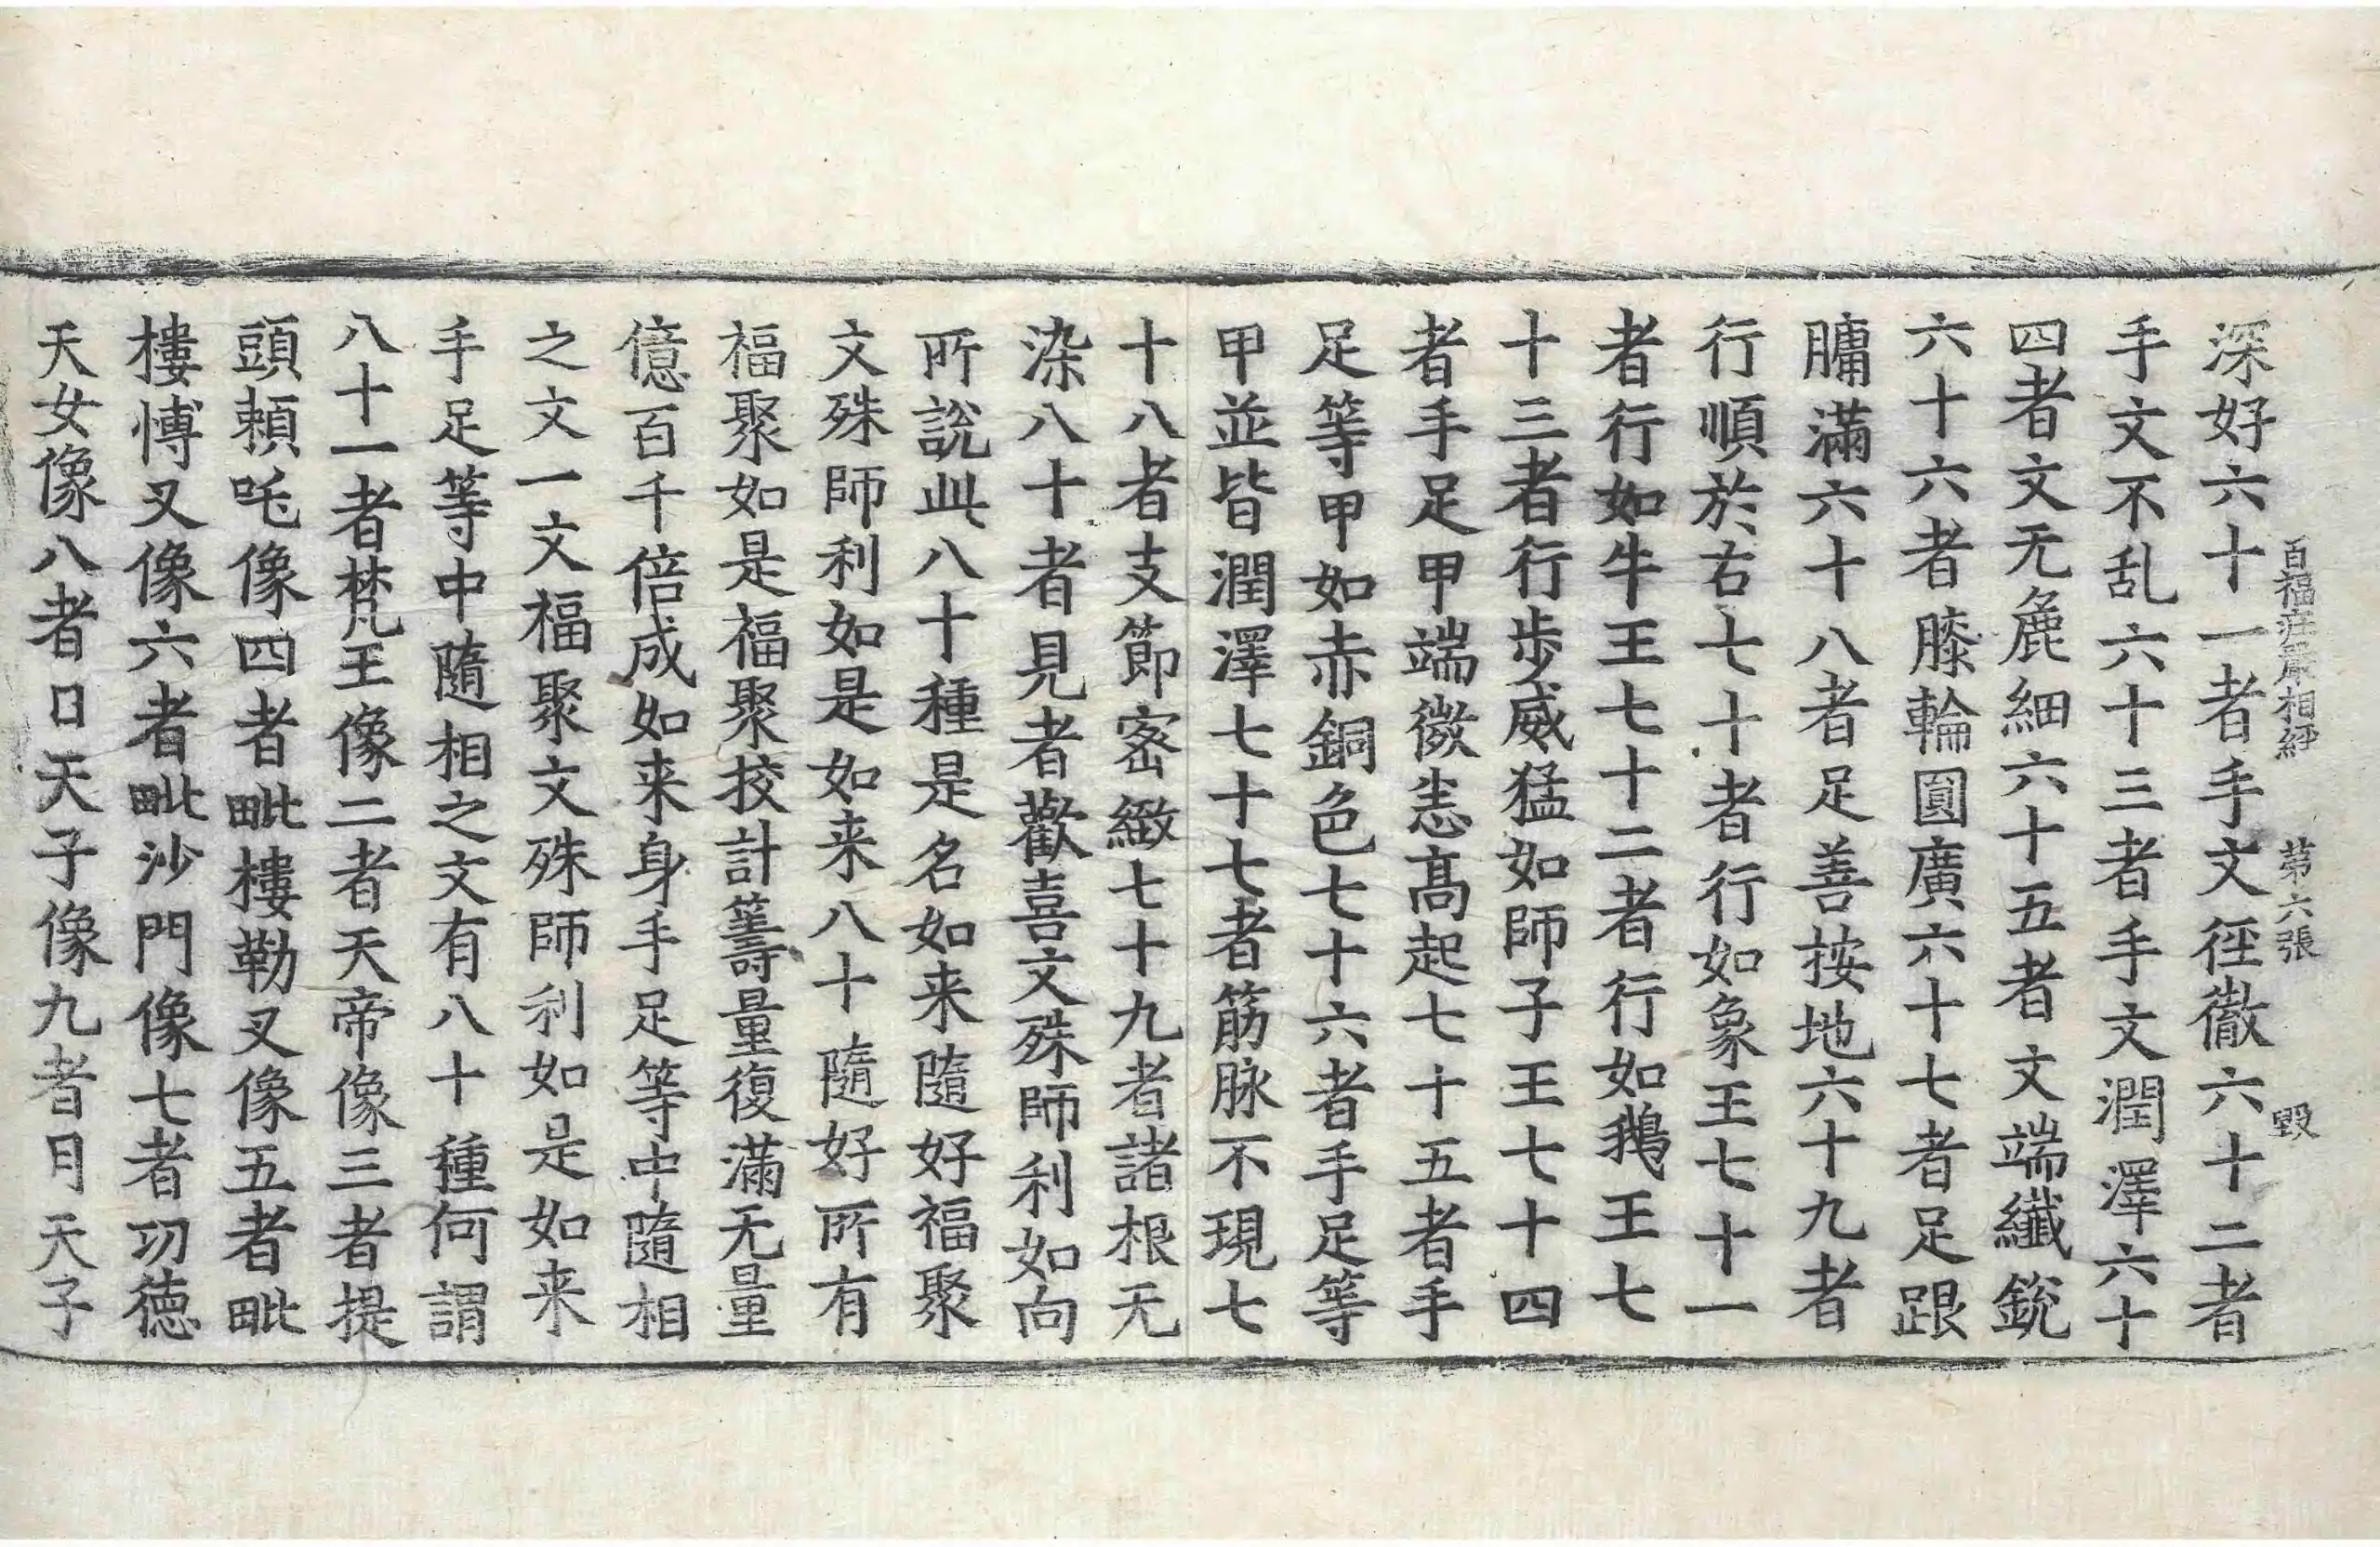 百福莊嚴相經 第六張 毀
深好六十一者手文徑徹六十二者
手文不乱六十三者手文潤澤六十
四者文无麁細六十五者文端纖銳
六十六者膝輪圓廣六十七者足跟
𦟛滿六十八者足善按地六十九者
行順於右七十者行如象王七十一
者行如牛王七十二者行如鵝王七
十三者行步威猛如師子王七十四
者手足甲端微恚高起七十五者手
足等甲如赤銅色七十六者手足等
甲並皆潤澤七十七者筋脉不現七
十八者支節密緻七十九者諸根无
染八十者見者歡喜文殊師利如向
所說此八十種是名如来隨好福聚
文殊師利如是如来八十隨好所有
福聚如是福聚挍計筹量復滿无量
億百千倍成如来身手足等中隨相
之文一文福聚文殊師利如是如来
手足等中隨相之文有八十種何謂
八十一者梵王像二者天帝像三者提
頭頼吒像四者毗樓勒叉像五者毗
樓愽叉像六者毗沙門像七者功德
天女像八者日天子像九者月天子